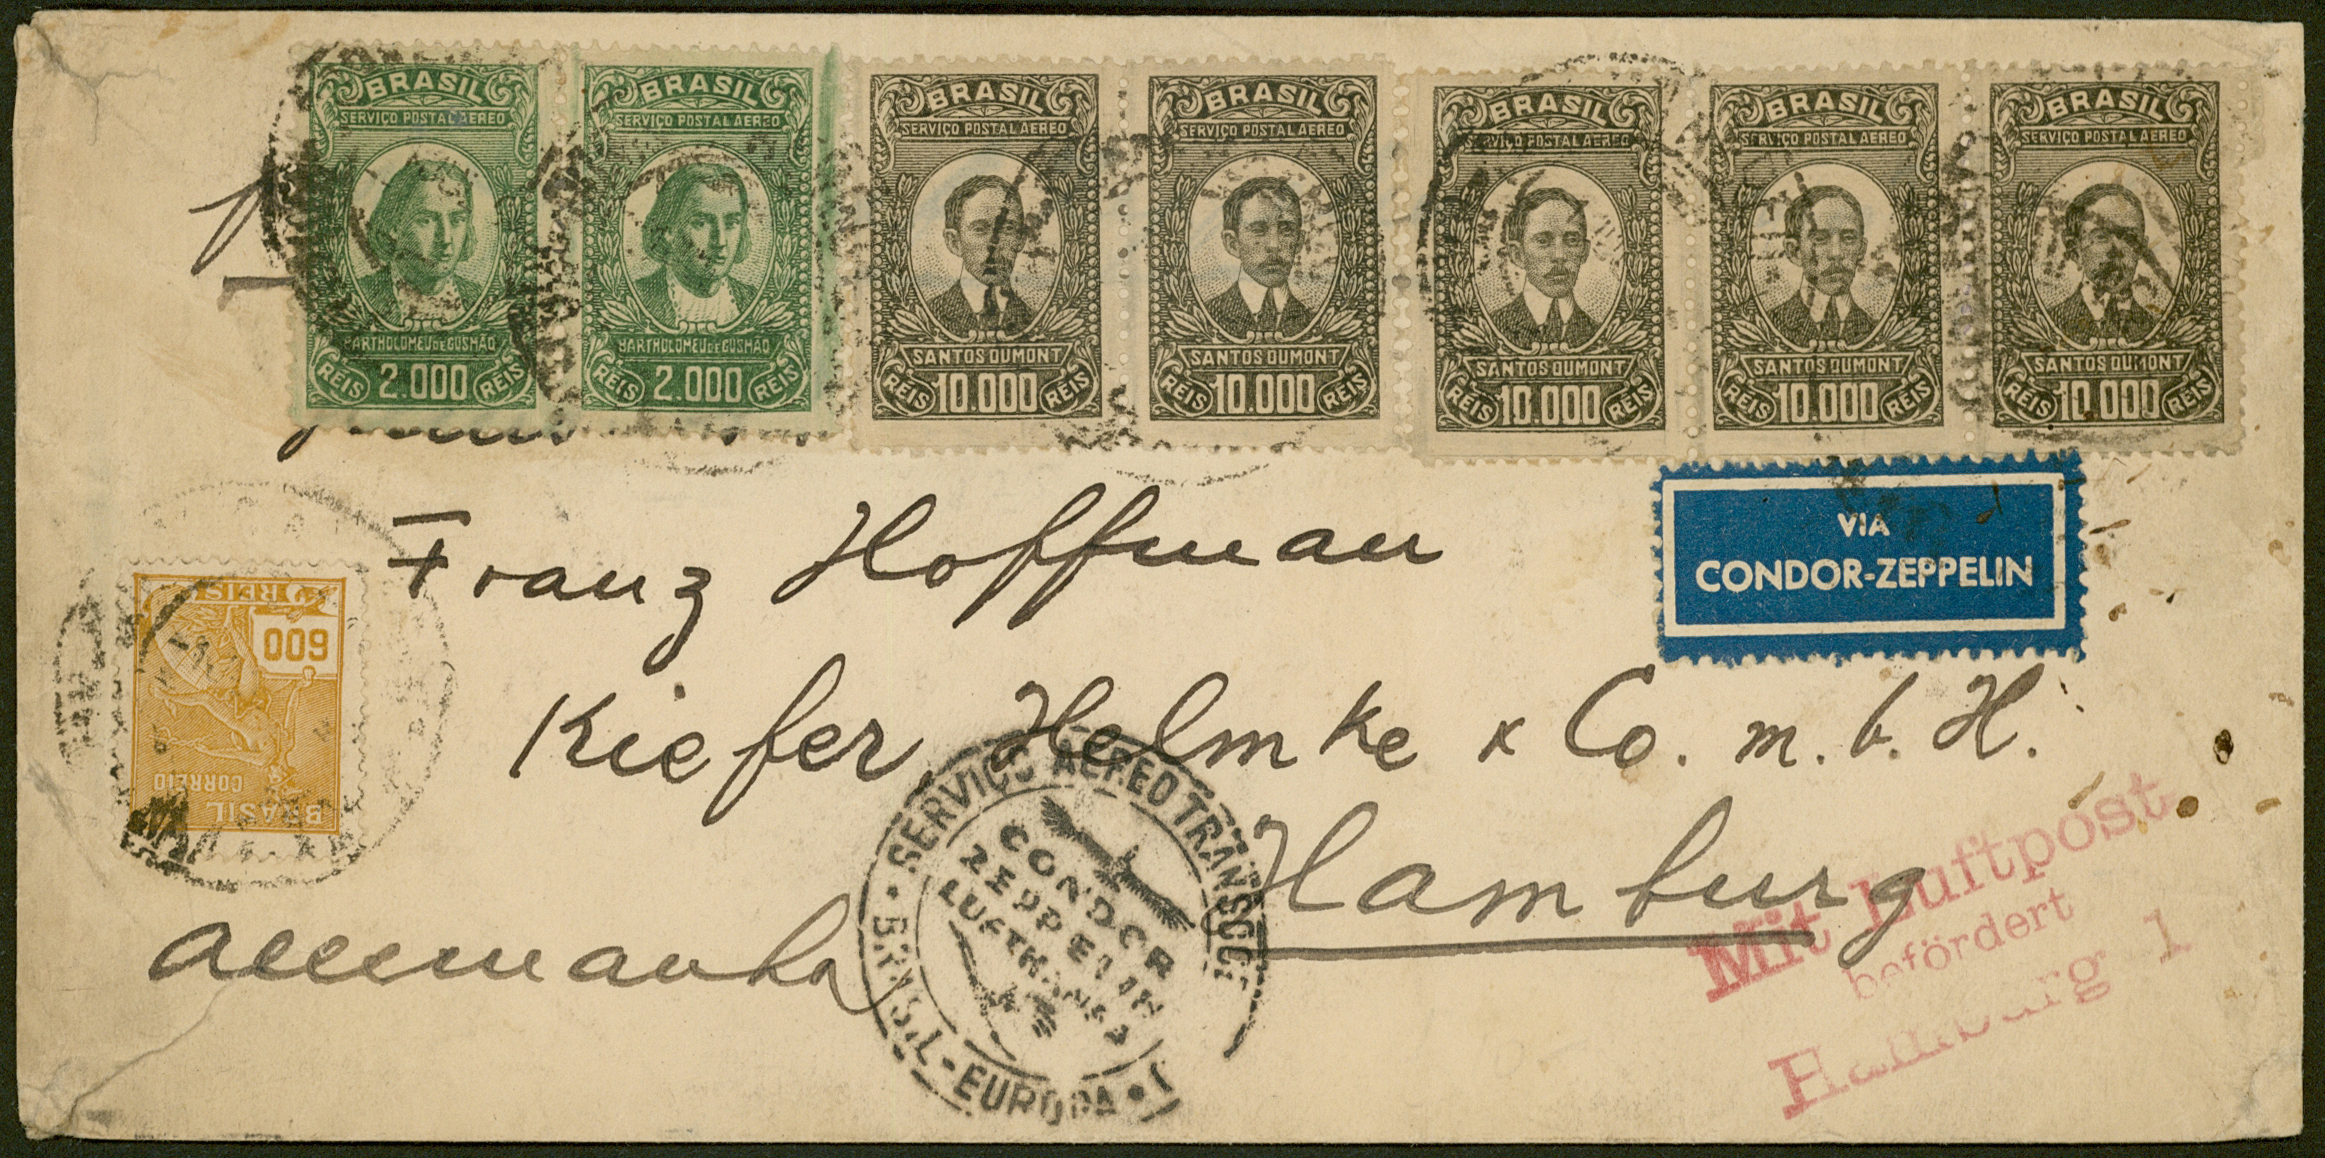 BRASIL
SERVIÇO POSTAL AEREO
BARTHOLOMEU DE GUSMÃO
REIS 2.000 REIS
BRASIL
SERVIÇO POSTAL AEREO
BARTHOLOMEU DE GUSMÃO
REIS 2.000 REIS
BRASIL
SERVIÇO POSTAL AEREO
SANTOS DUMONT
REIS 10.000 REIS
BRASIL
SERVIÇO POSTAL AEREO
SANTOS DUMONT
REIS 10.000 REIS
BRASIL
SERVIÇO POSTAL AEREO
SANTOS DUMONT
REIS 10.000 REIS
BRASIL
SERVIÇO POSTAL AEREO
SANTOS DUMONT
REIS 10.000 REIS
BRASIL
SERVIÇO POSTAL AEREO
SANTOS DUMONT
REIS 10.000 REIS
VIA
CONDOR-ZEPPELIN
Franz Hoffman
Kiefer, Helmke & Co. m. b. H.
Hamburg
Allemanha
BRASIL
CORREIO
600
REIS
SERVIÇO AEREO TRANSOC
CONDOR
ZEPPELIN
LUFTHANSA
BRASIL-EUROPA
Mit Luftpost
befördert
Hamburg 1